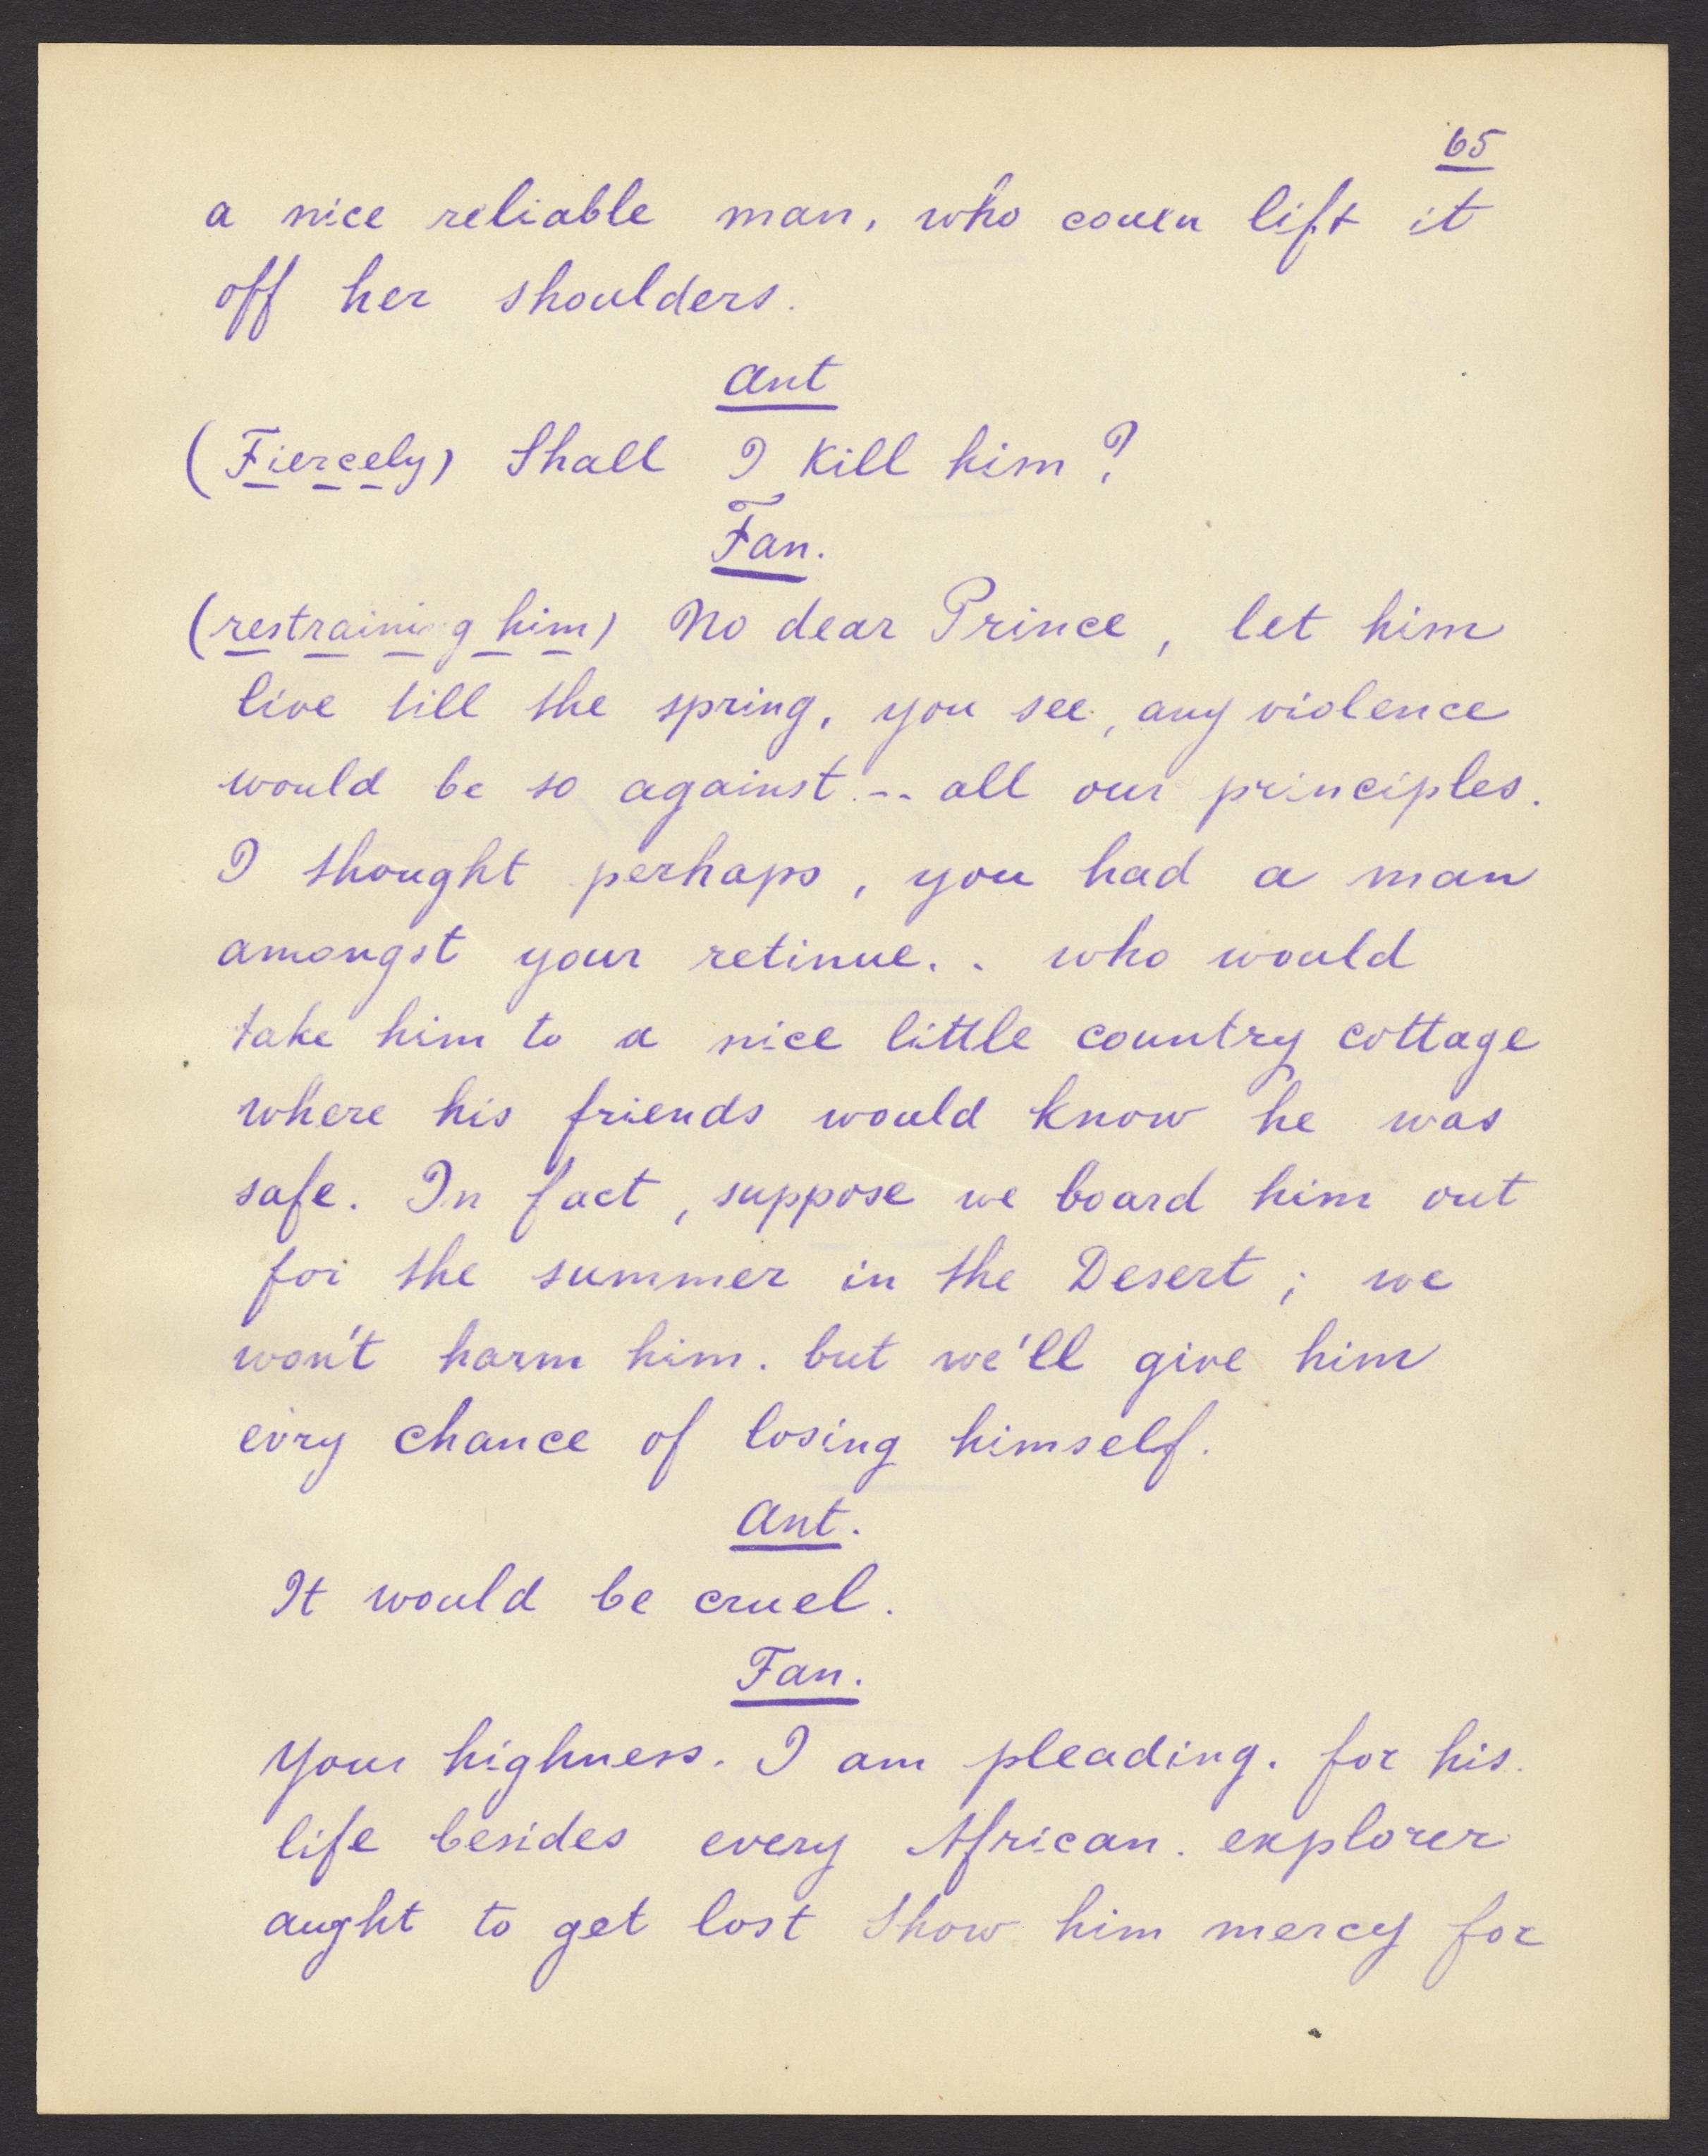 65
a nice reliable man, who could lift it
off her shoulders.
Ant
(Fiercely) Shall I kill him?
Fan.
(restraining him) No dear Prince, let him
live till the spring, you see, any violence
would be so against.-- all our principles.
I thought perhaps, you had a man
amongst your retinue. . who would
take him to a nice little country cottage
where his friends would know he was
safe. In fact, suppose we board him out
for the summer in the Desert; we
won't harm him. but we'll give him
evry chance of losing himself.
Ant.
It would be cruel.
Fan.
Your highness. I am pleading. for his.
life besides every African. explorer
aught to get lost Show him mercy for